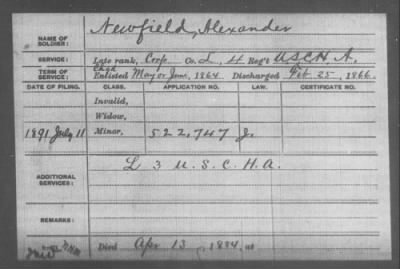 NAME OF SOLDIER: Newfield, Alexander
SERVICE: Late rank, Corp Co. L, 4 Reg't U.S.C.H.A.
TERM OF SERVICE: Enlisted May or June, 1864 Discharged Feb 25, 1866.
DATE OF FILING. CLASS. APPLICATION NO. LAW. CERTIFICATE NO.
Invalid,
Widow,
1891 July 11 Minor, 522,747 J.
ADDITIONAL SERVICES: L 3 U.S.C.H.A.
REMARKS:
Died Apr 13, 1884,